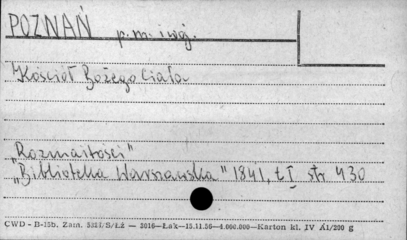 POZNAŃ p.m. i woj.
Kościół Bożego Ciała
"Rozmaitości"
"Biblioteka Warszawska" 1841, t I str 430
CWD - B-15b. Zam. 5321/S/ŁŻ — 3016—Łak—15.11.56—4.000.000—Karton kl. IV A1/200 g